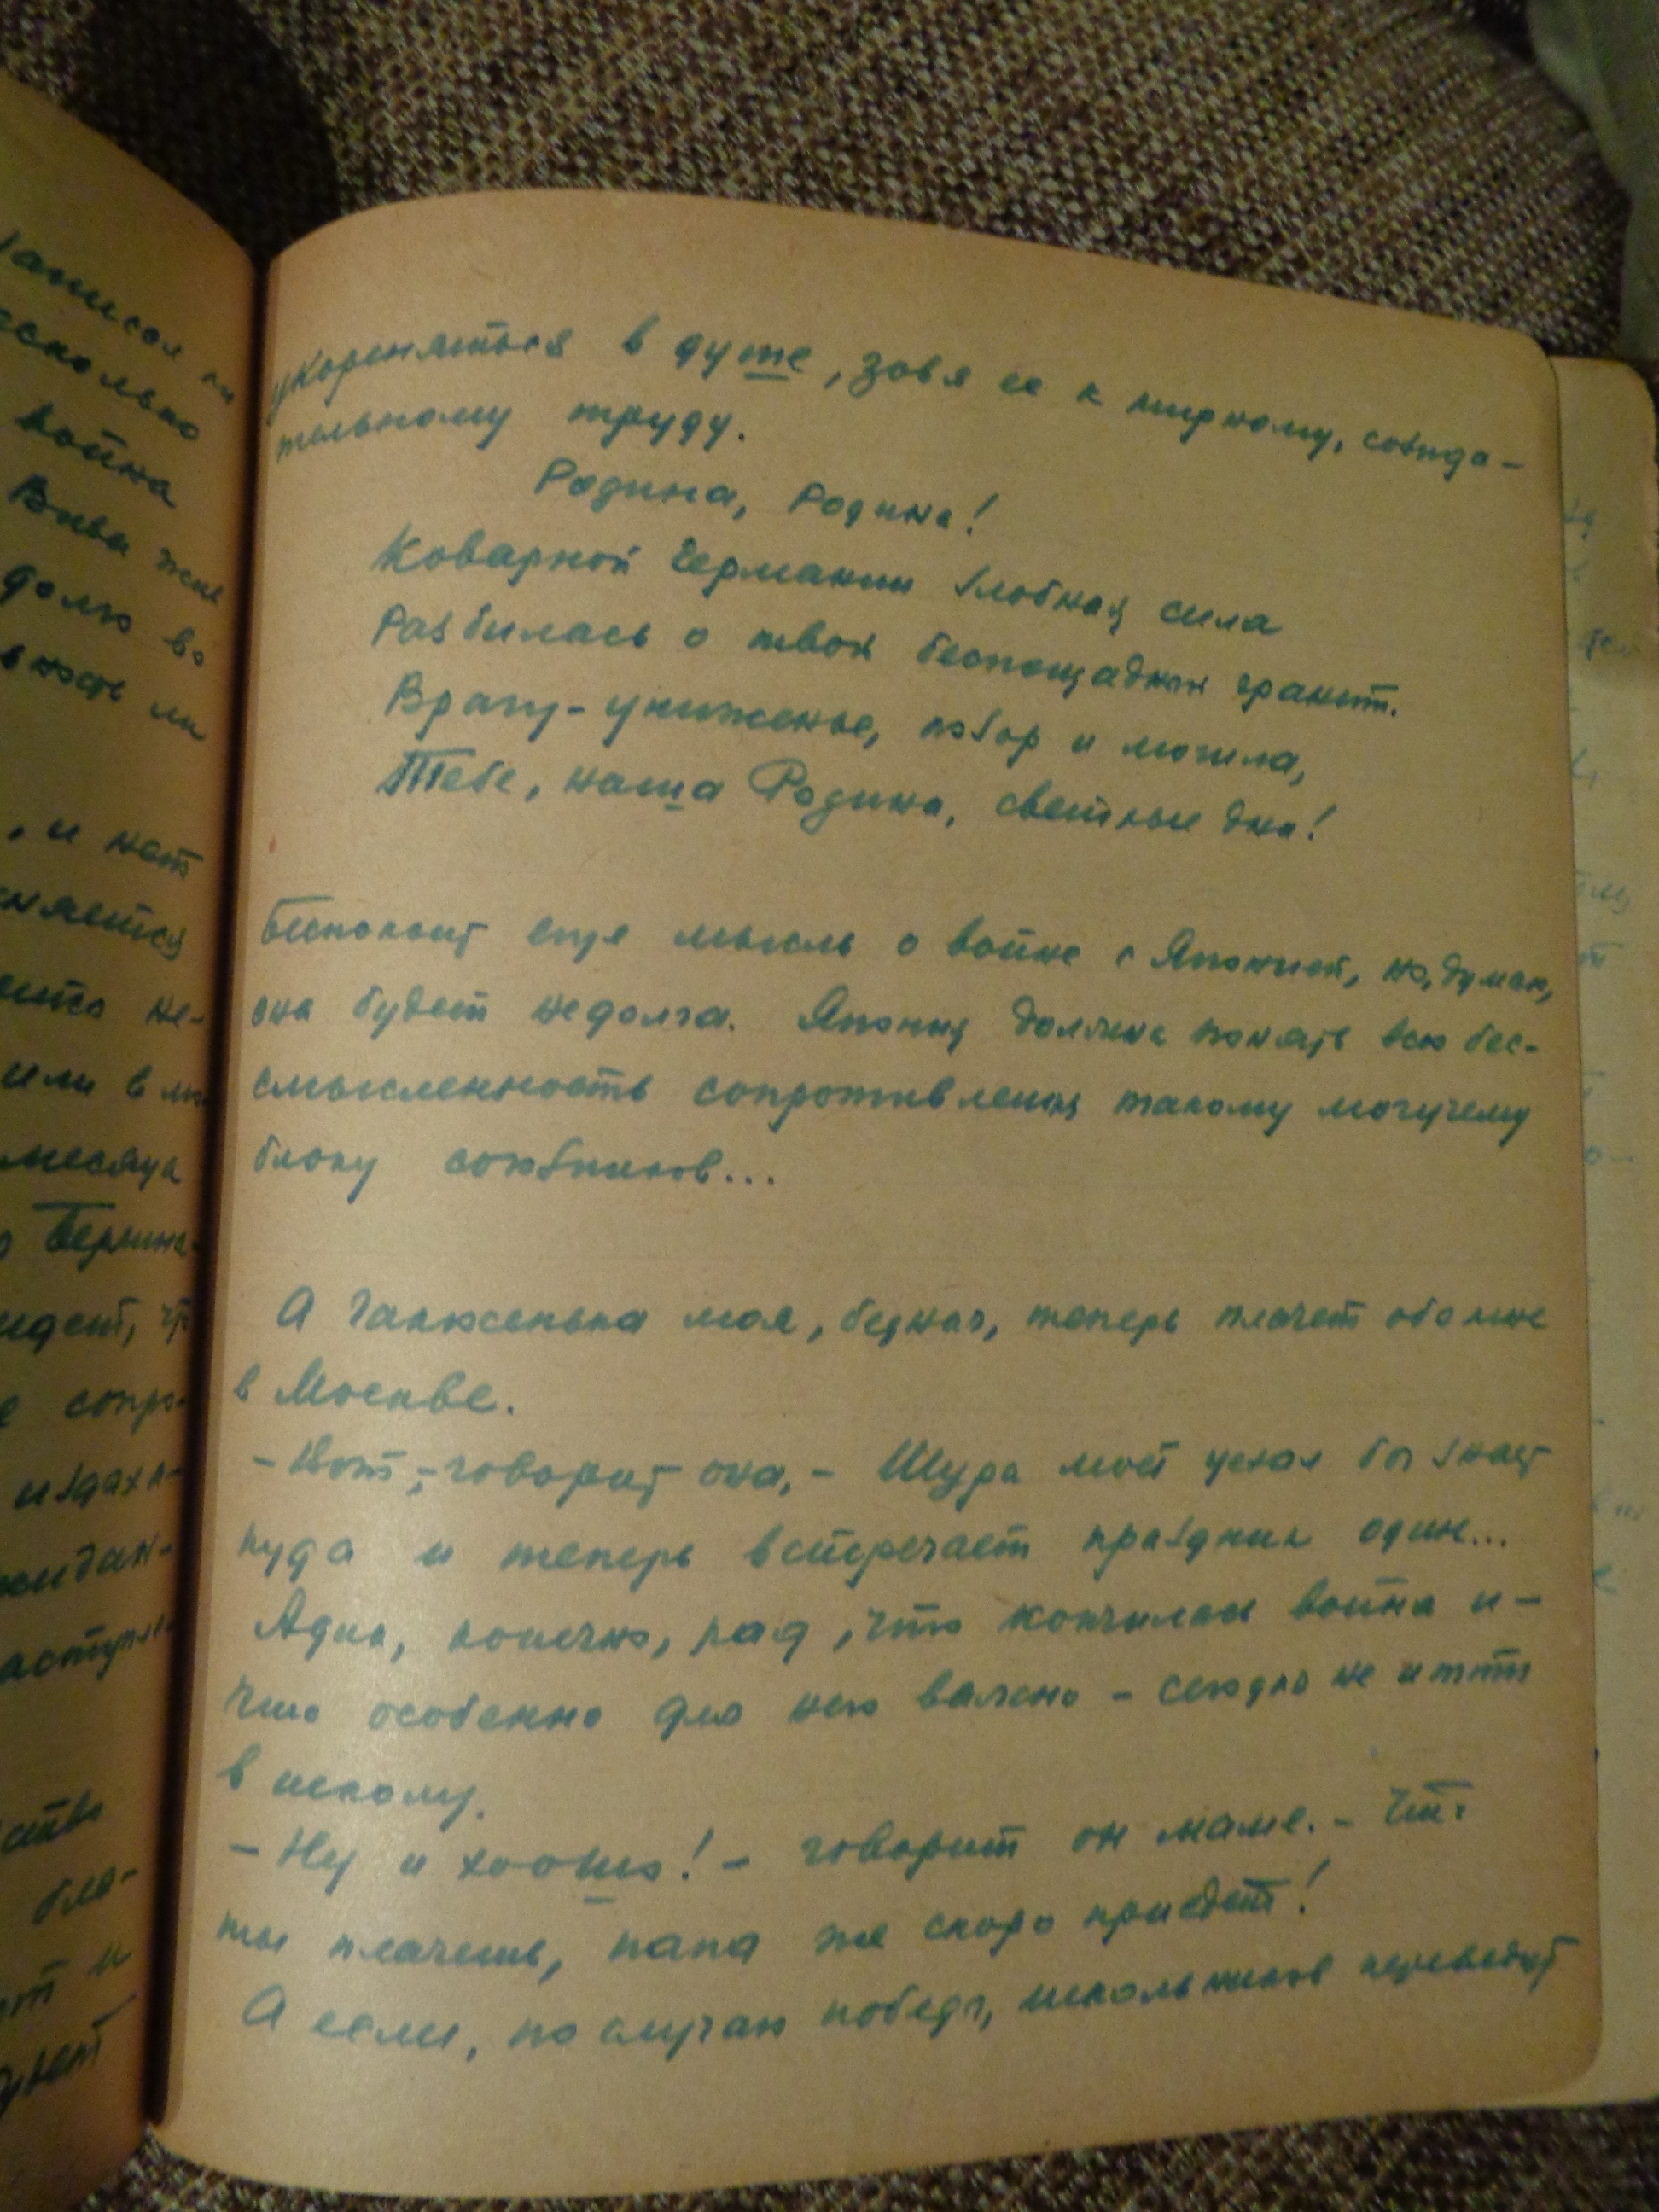 укореняться в душе, зовя ее к мирному, созида-
тельному труду.
Родина, Родина!
Коварной Германии злобная сила
Разбилась о твой беспощадный гранит.
Врагу - униженье, позор и могила,
Тебе, наша Родина, светлые дни!
Беспокоит еще мысль о войне с Японией, но, думаю,
она будет недолга. Япония должна понять всю бес-
смысленность сопротивления такому могучему
блоку союзников...
А Ганюсенька моя, бедная, теперь плачет обо мне
в Москве.
- Вот, - говорит она, - Шура мой уехал бог знает
куда и теперь встречает праздник один...
Адик, конечно, рад, что кончилась война и -
что особенно для него важно - сегодня не итти
в школу.
- Ну и хоошо! - говорит он маме. - Что
ты плачешь, папа же скоро приедет!
А если, по случаю победы, школьников переведут
написал
несколько
война
долго во
, и нет
или в
месяца
Берлина